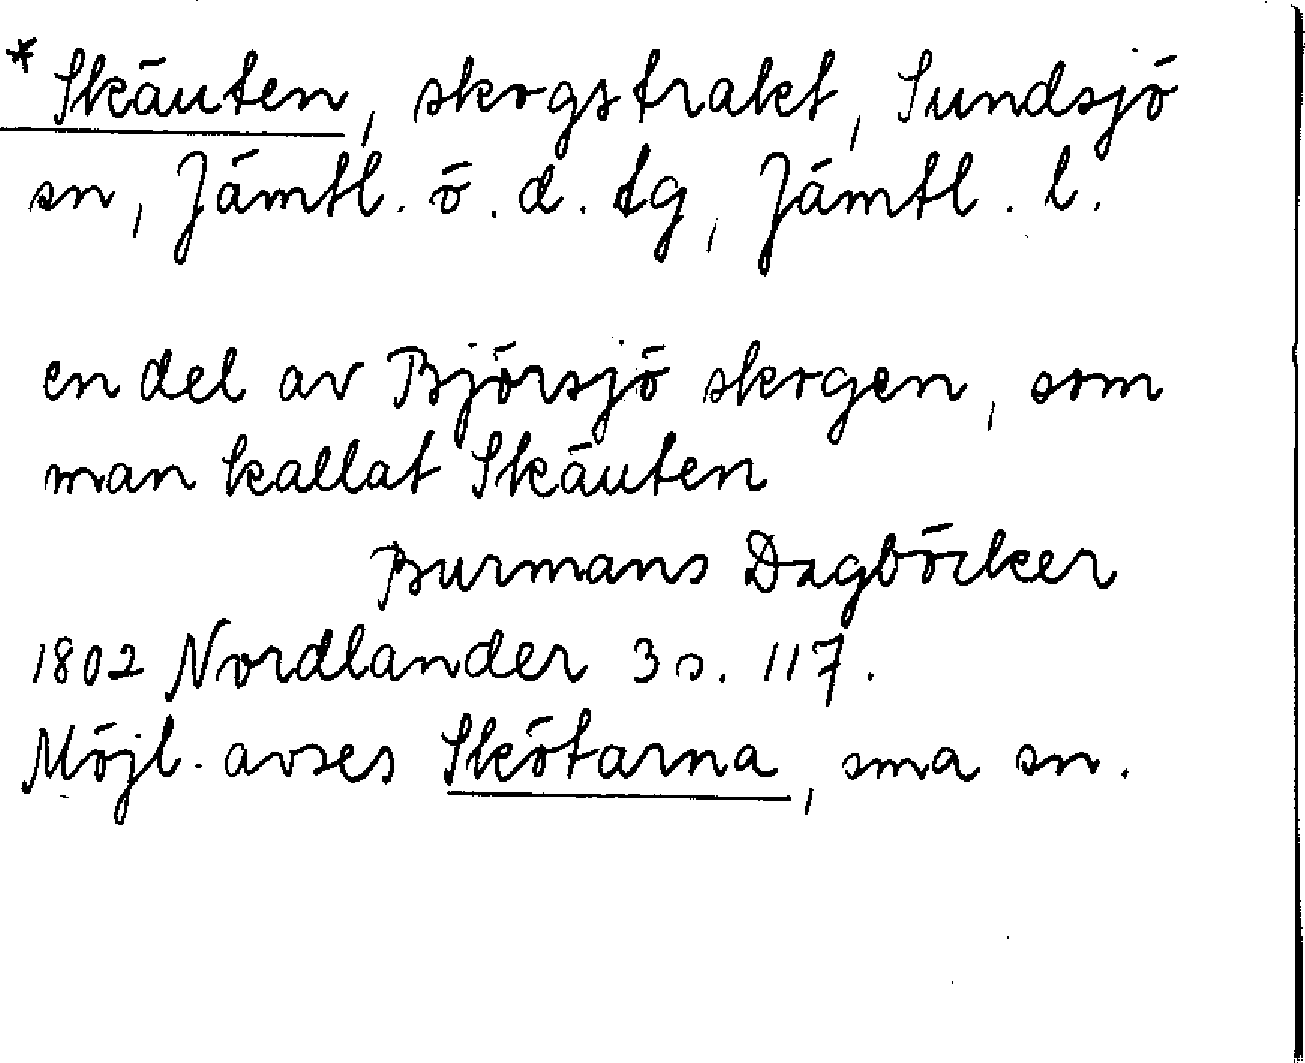 * Skäuten, skogstrakt, Sundsjö
sn, Jämtl. ö. d. tg, Jämtl. l.
en del av Björsjö skogen, som
man kallat Skäuten
Burmans Dagböcker
1802 Nordlander 3 s. 117.
Möjl. avses Skötarna, sma sn.